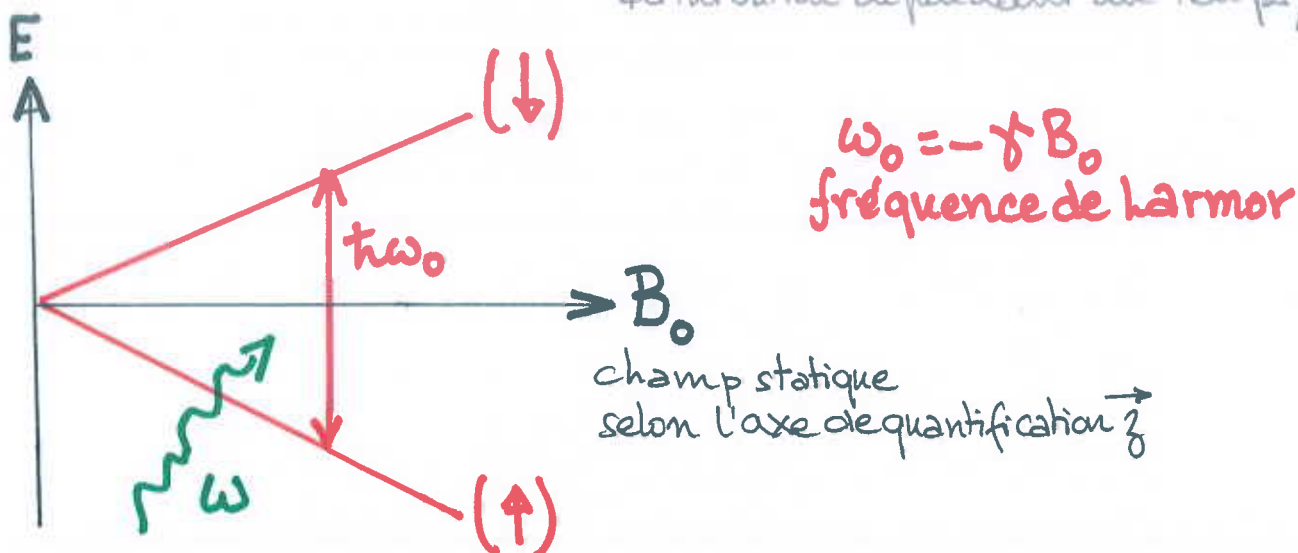 E
(↓)
ω₀ = - γ B₀
fréquence de Larmor
ħω₀
B₀
champ statique
selon l'axe de quantification z⃗
ω
(↑)